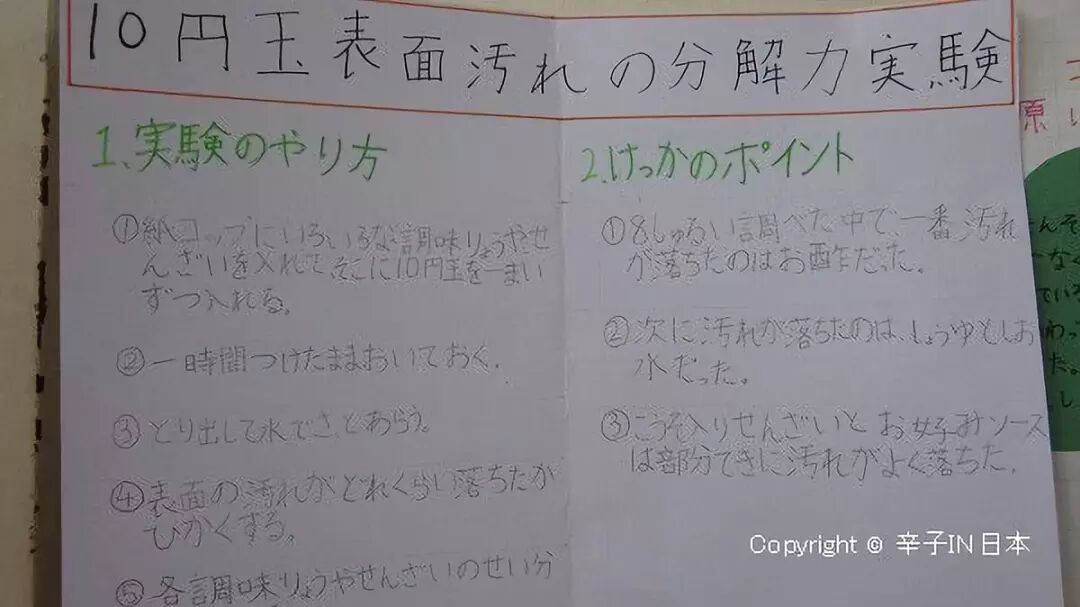 10円玉表面汚れの分解力実験
1.実験のやり方
①紙コップにいろいろな調味りょうやせ
んざいを入れてそこに10円玉を一まい
ずつ入れる。
②一時間つけたままおいておく。
③とり出して水でさっとあらう。
④表面の汚れがどれくらい落ちたか
ひかくする。
⑤各調味りょうやせんざいのせい分
2.けっかのポイント
①8しゅるい調べた中で一番汚れ
が落ちたのはお酢だった。
②次に汚れが落ちたのは、しょうゆとしお
水だった。
③こうそ入りせんざいとお好みソース
は部分てきに汚れがよく落ちた。
原
Copyright © 辛子IN日本